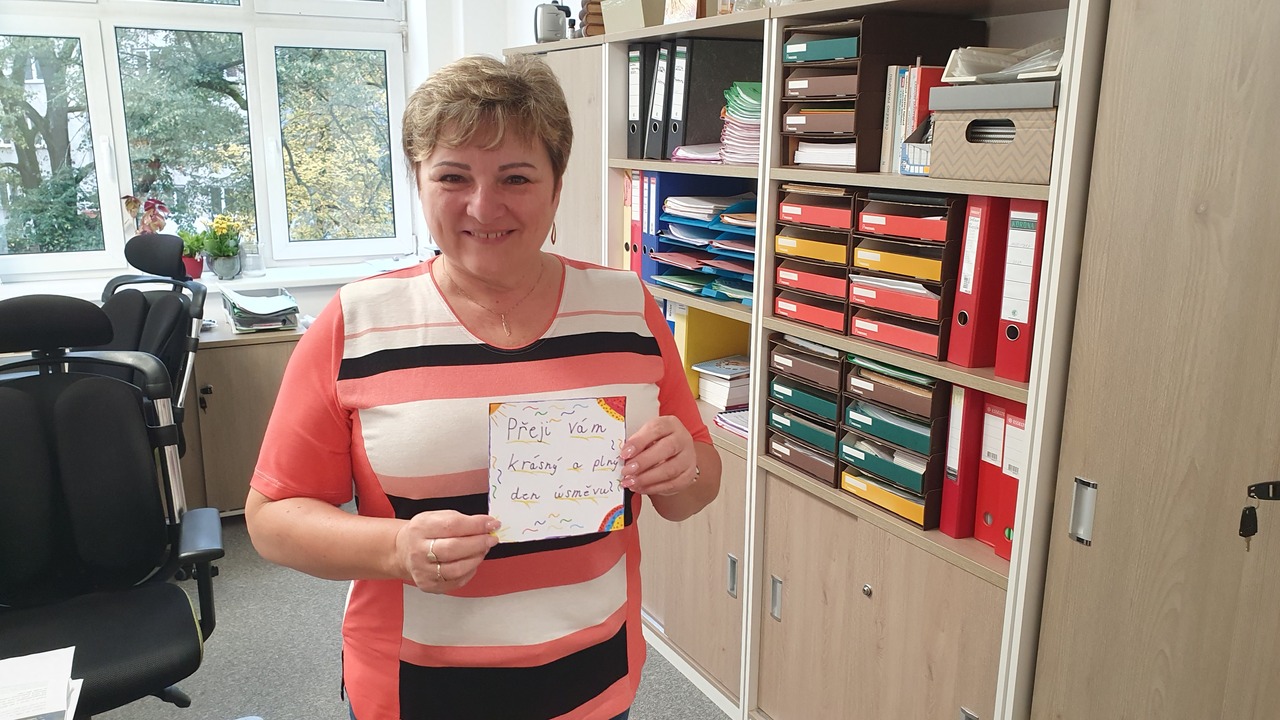 Přeji vám
krásný a plný
den úsměvů